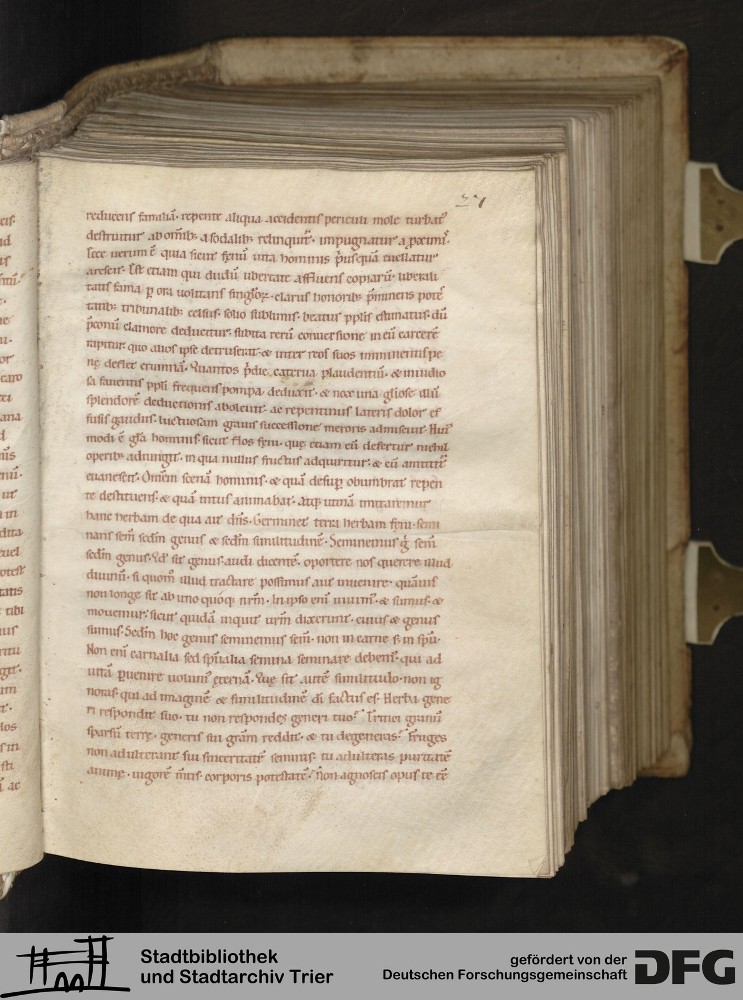 27
reducens familiā· repente aliqua accidentis periculi mole turbat᷒
destruitur ab om̄ib; a sodalib; relinquit᷒· impugnatur a p̄ximis·
Ecce uerum ē quia sicut fęnū uita hominis p̄usquā euellatur
arescit· Est etiam qui dudū ubertate affluens copiarū· liberali
tatis fama p ora uolitans singłorꝝ· clarus honorib; p̄minens pote
tatib; tribunalib; celsus· solio sublimis· beatus pp̄lis estimatus· dū
p̄conū clamore deducitur· subita rerū conuersione in eū carcerē
rapitur quo alios ipse detruserat· & inter reos suos imminentis pe
nę deflet erumnā· Quantos p̄die caterua plaudentiū· & inuidio
sa fauentis pp̄li frequens pompa deduxit· & nocte una gliosę illū
splendorē deductionis aboleuit· ac repentinus lateris dolor ef
fusis gaudiis· luctuosam grauis successione meroris admiscuit· Hui᷒
modi ē gła hominis· sicut flos fęni· quę etiam cū defertur nichil
operib; adiungit· in qua nullus fructus adquiritur· & cū amittit᷒
euanescit· Omnem scenā hominis· & quā desup obumbrat repen
te destituens· & quā intus animabat· Atq; utinā imitaremur
hanc herbam de qua ait dn̄s· Germinet terra herbam fęni· semi
nans sem̄ scdm̄ genus & scdm̄ similitudinē· Seminemus g̊ sem̄
scdm̄ genus· Qd̄ sit genus· audi dicentē· oportere nos querere illud
diuinū· si quom̊ illud tractare possimus aut inuenire· quāuis
non longe sit ab uno quoq; nrm̄· In ipso eni᷒ uiuim᷒· & sumus· &
mouemur· sicut quidā inquit urm̄ dixerunt· cuius & genus
sumus· Scdm̄ hoc genus seminemus sem̄· non in carne s; in spū·
Non enī carnalia sed sp̄ualia semina seminare debem᷒· qui ad
uitā puenire uolum᷒ ęternā· Quę sit autē similitudo· non ig
noras· qui ad imaginē & similitudinē dī factus es· Herba gene
ri respondit suo· tu non respondes generi tuo? Tritici granū
sparsū terrę· generis sui grām reddit· & tu degeneras? Fruges
non adulterant sui sinceritatē seminis· tu adulteras puritatē
animę· uigorē mtis· corporis potestatē· Non agnoscis opus te eē
Stadtbibliothek
und Stadtarchiv Trier
gefördert von der
Deutschen Forschungsgemeinschaft
DFG